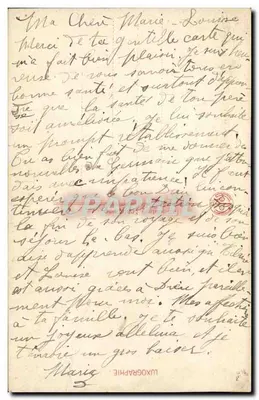 Ma Chère Marie-Louise
Merci de ta gentille carte qui
m'a fait bien plaisir. Je suis heu
reuse de vous savoir tous en
bonne santé et surtout d'appren
dre que la santé de ton père
soit améliorée je lui souhaite
un prompt rétablissement
Tu as bien fait de me donner des
nouvelles de Germaine que j'atten
dais avec impatience. Il faut
espérer
la fin de son
séjour là-bas. Je suis bien
aise d'apprendre aussi que
et Louise vont bien et il en
est aussi grâces à Dieu pareille
ment pour moi. Mes affections
à ta famille, je te souhaite
un joyeux alleluia et je
t'envoie un gros baiser.
Marie
CPAPHIL
LUXOGRAPHIE